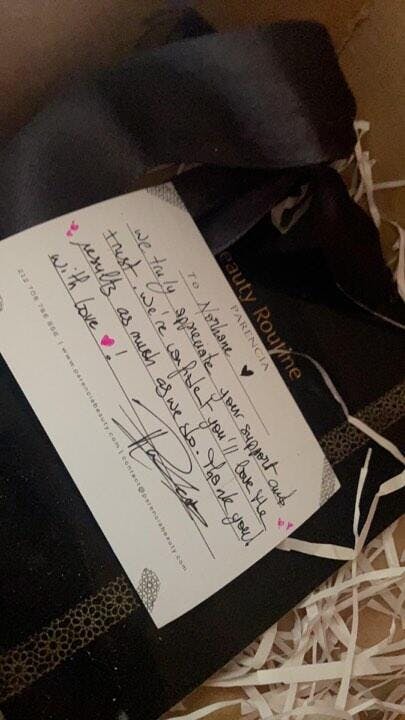 eauty Routine
PARENCIA
TO Norhane
We truly appreciate your support and
trust, we're confident you'll love the
results as much as we so. Thank you!
with love !
708 786 886 | www.parenciabeauty.com | contact@parenciabeauty.com